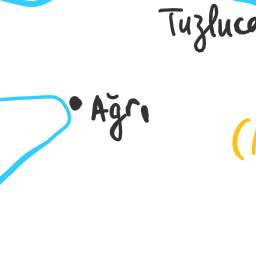 Tuzluca
Ağrı